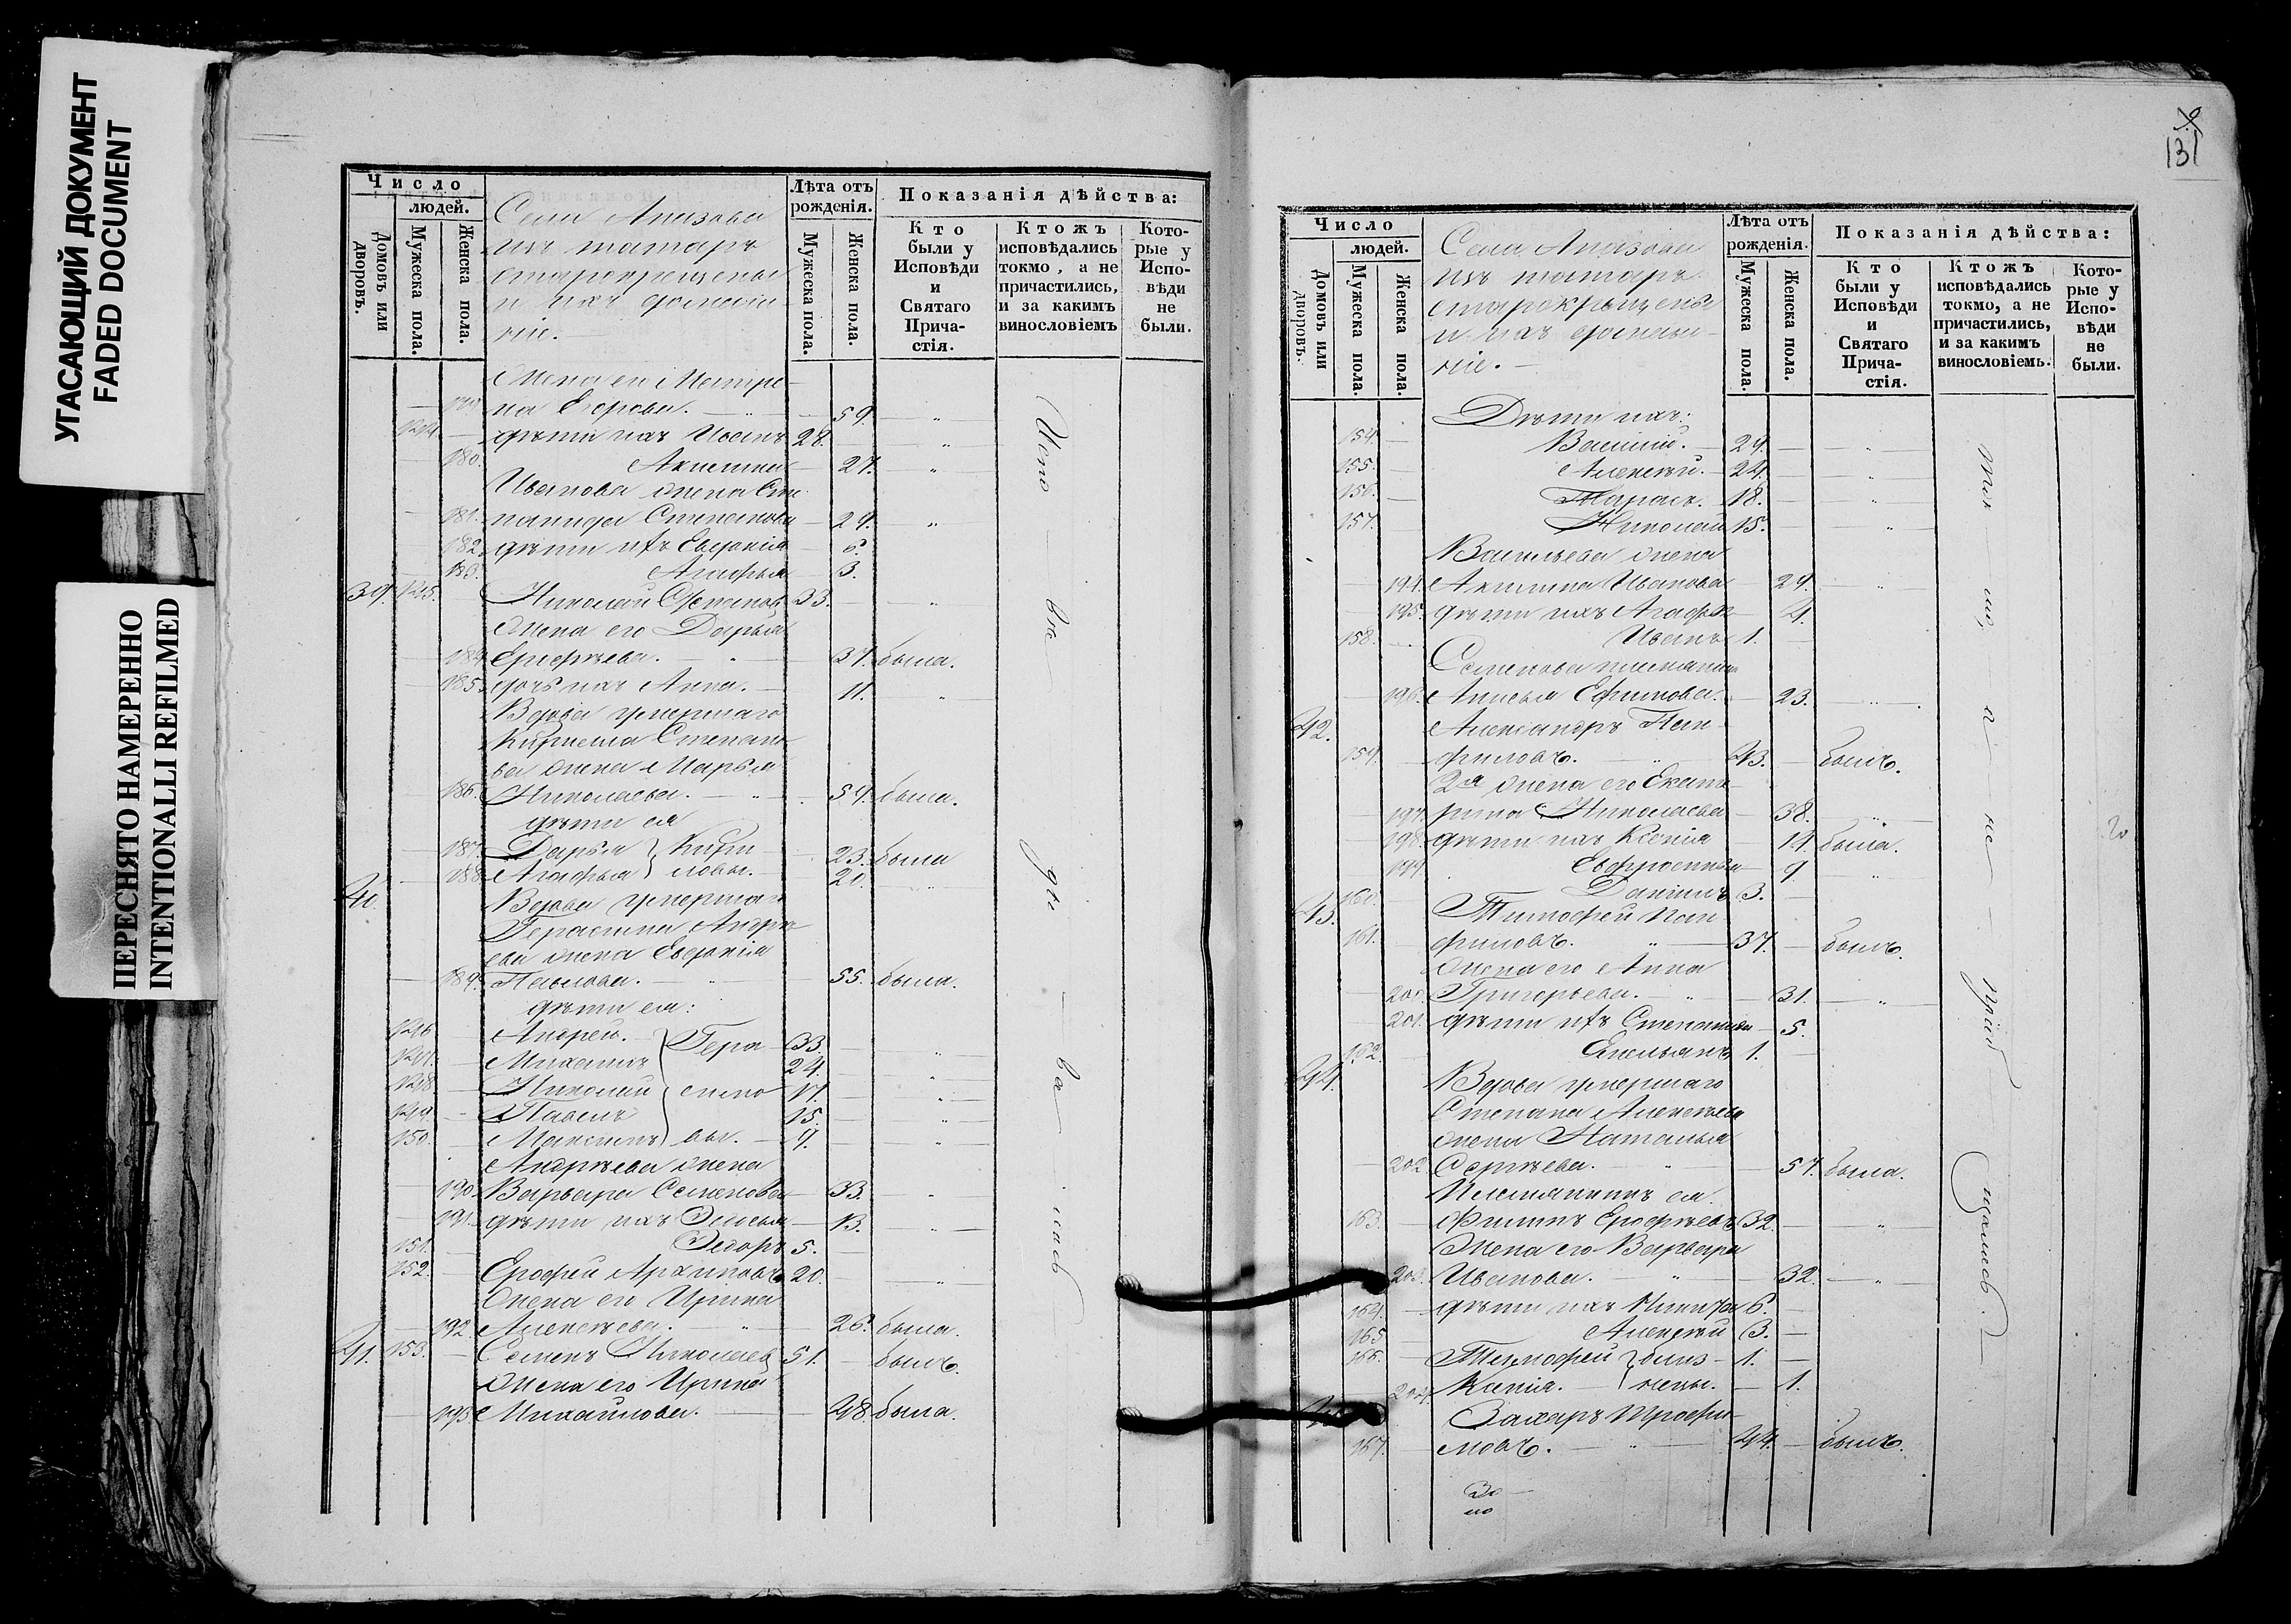 УГАСАЮЩИЙ ДОКУМЕНТ
FADED DOCUMENT
ПЕРЕСНЯТО НАМЕРЕННО
INTENTIONALLI REFILMED
Число
людей.
Домовъ или дворовъ.
Мужеска пола.
Женска пола.
Села Апазова
изъ татаръ
старокрещены
и ихъ домашніе.
Лѣта отъ рожденія.
Мужеска пола.
Женска пола.
Показанія дѣйства:
Кто были у Исповѣди и Святаго Причастія.
Ктожъ исповѣдались токмо, а не причастились, и за какимъ винословіемъ
Которые у Исповѣди не были.
Жена его Матре-
179. на Егорова. 59.
124. дѣти ихъ Иванъ 28.
180. Акилина 27.
Иванова жена Сте-
181. панида Степанова 29.
182. дѣти ихъ Евдокія 6.
183. Агафья 3.
39. 125. Николай Степановъ 33.
Жена его Дарья
184. Ерофѣева. 37. была.
185. дочь ихъ Анна. 11.
Вдова умершаго
Кирилла Степано-
ва жена Марья
186. Николаева. 54. была.
дѣти ея
187. Дарья } Кири- 23. была
188. Агафья } ловы. 20.
40. Вдова умершаго
Герасима Андре-
ева жена Евдокія
189. Павлова. 55. была.
дѣти ея:
Андрей. } Гера- 33
Михаилъ 24.
Николай симо- 17.
Павелъ 15.
150. Максимъ } вы. 9.
Андреева жена
190. Варвара Семенова 33.
191. дѣти ихъ 13.
151. Ѳедоръ 5.
152. Ерофей Архиповъ 20.
Жена его Ирина
192. Алексѣева. 26. была.
41. 153. Семенъ Николаевъ 51. былъ.
Жена его Ирина
193 Михайлова. 48. была.
131
Число
людей.
Домовъ или дворовъ.
Мужеска пола.
Женска пола.
Села Апазова
изъ татаръ
старокрещены
и ихъ домашніе.
Лѣта отъ рожденія.
Мужеска пола.
Женска пола.
Показанія дѣйства:
Кто были у Исповѣди и Святаго Причастія.
Ктожъ исповѣдались токмо, а не причастились, и за какимъ винословіемъ.
Которые у Исповѣди не были.
Дѣти ихъ:
154. Василій. 29.
155. Алексѣй. 24.
156. Тарасъ. 18.
157. Николай 15.
Васильева жена
194. Акилина Иванова 29.
195. дѣти ихъ Агафья 4.
158. Иванъ 1.
Семенова племянница
196. Анисья Ефимова. 23.
42. Александръ Пан-
159. филовъ. 43. былъ.
2я жена его Екате-
197. рина Николаева 38.
198. дѣти ихъ Ксенія 14. была.
199 Евфросинья 9
160. Даніилъ 3.
43. Тимофей Пан-
161. филовъ. 37. былъ.
Жена его Анна
200. Григорьева. 31.
201. дѣти ихъ Степанида 5.
162. Емельянъ 1.
44. Вдова умершаго
Степана Алексѣева
жена Наталья
202. Сергѣева. 57. была.
Племянникъ ея
163. Филипъ Ерофѣевъ 32.
Жена его Варвара
203. Иванова. 32.
164. дѣти ихъ Никита 6.
165. Алексѣй 3.
166. Тимофей } близ- 1.
204. Ксенія. } нецы. 1.
Захаръ Трофи-
167. мовъ. 44. былъ.